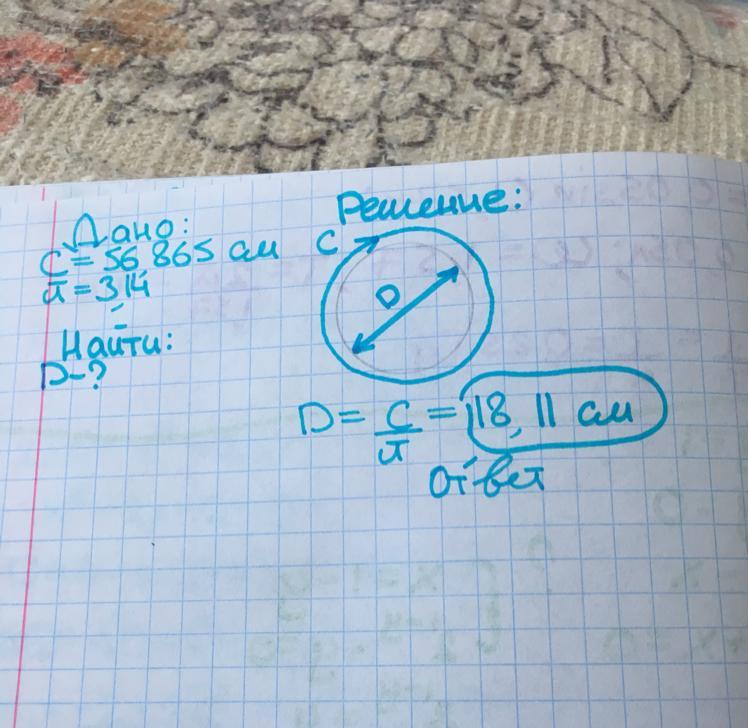 Дано:
C = 56,865 см
π = 3,14
Найти:
D-?
Решение:
C
D
D = C/π = 18,11 см
ответ